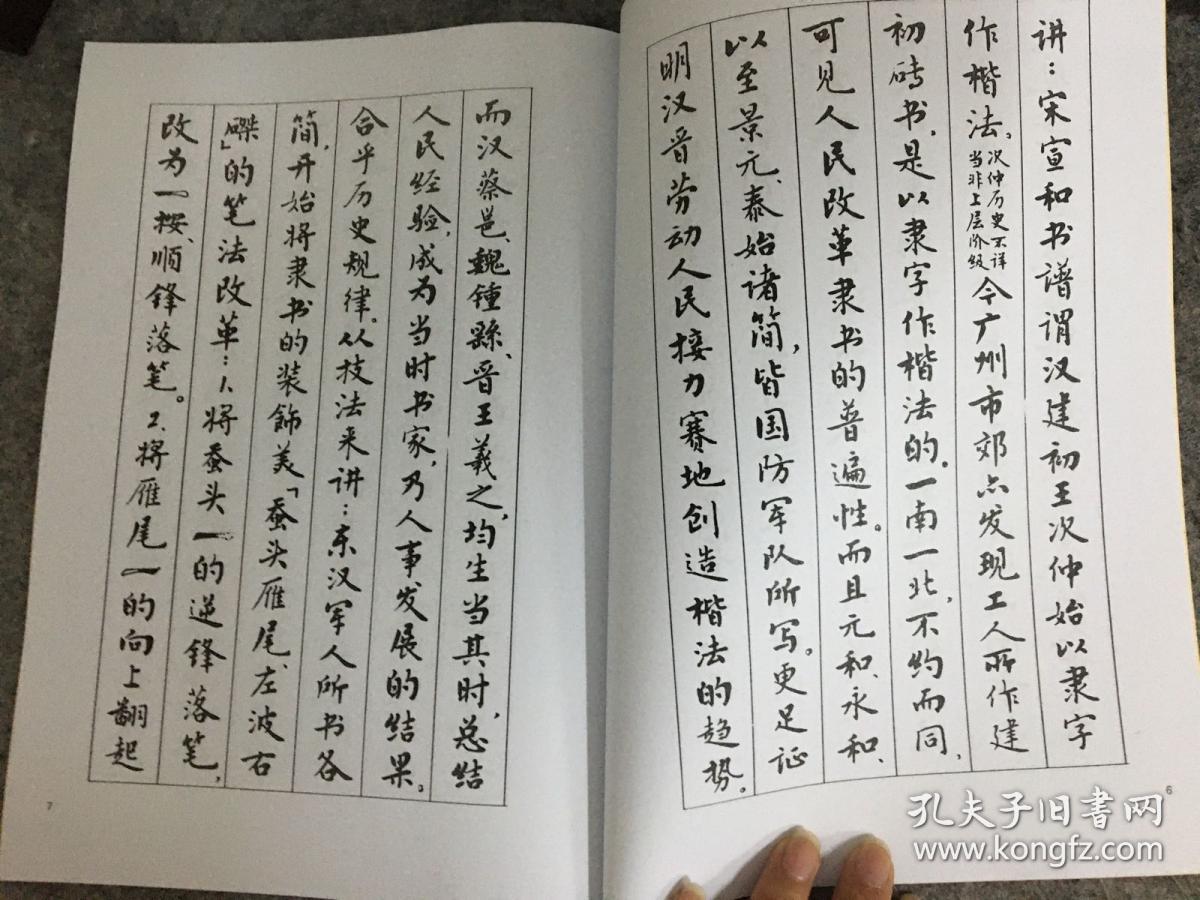 讲：宋宣和书谱谓汉建初王次仲始以隶字
作楷法。次仲历史不详当非上层阶级今广州市郊点发现工人所作建
初砖书，是以隶字作楷法的。一南一北，不约而同，
可见人民改革隶书的普遍性。而且元和、永和、
以至景元、泰始诸简，皆国防军队所写。更足证
明汉晋劳动人民接力赛地创造楷法的趋势。
6
而汉蔡邕、魏锺繇、晋王羲之，均生当其时，总结
人民经验，成为当时书家，乃人事发展的结果。
合乎历史规律。从技法来讲：东汉军人所书各
简，开始将隶书的装饰美「蚕头雁尾、左波右
磔」的笔法改革：1、将蚕头一的逆锋落笔，
改为一按、顺锋落笔。2、将雁尾一的向上翻起
7
孔夫子旧书网
www.kongfz.com